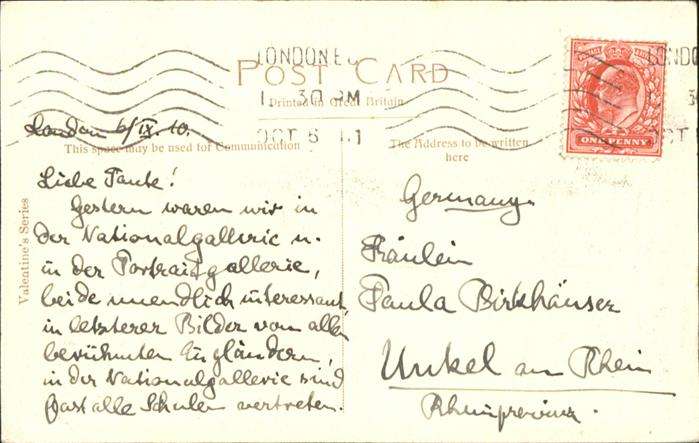 LONDON E.C
POST CARD
1. 30 PM
Printed in Great Britain
London 6/IX. 10.
OCT 6 11
This space may be used for Communication
The Address to be written
here
ONE PENNY
LONDO
OCT
Valentine's Series
Liebe Tante!
Gestern waren wir in
der Nationalgallerie u.
in der Portraitgallerie,
beide unendlich interessant,
in letzterer Bilder von allen
berühmten Engländern,
in der Nationalgallerie sind
fast alle Schulen vertreten.
Germany.
Fräulein
Paula Birkhäuser
Unkel am Rhein
Rheinprovinz.